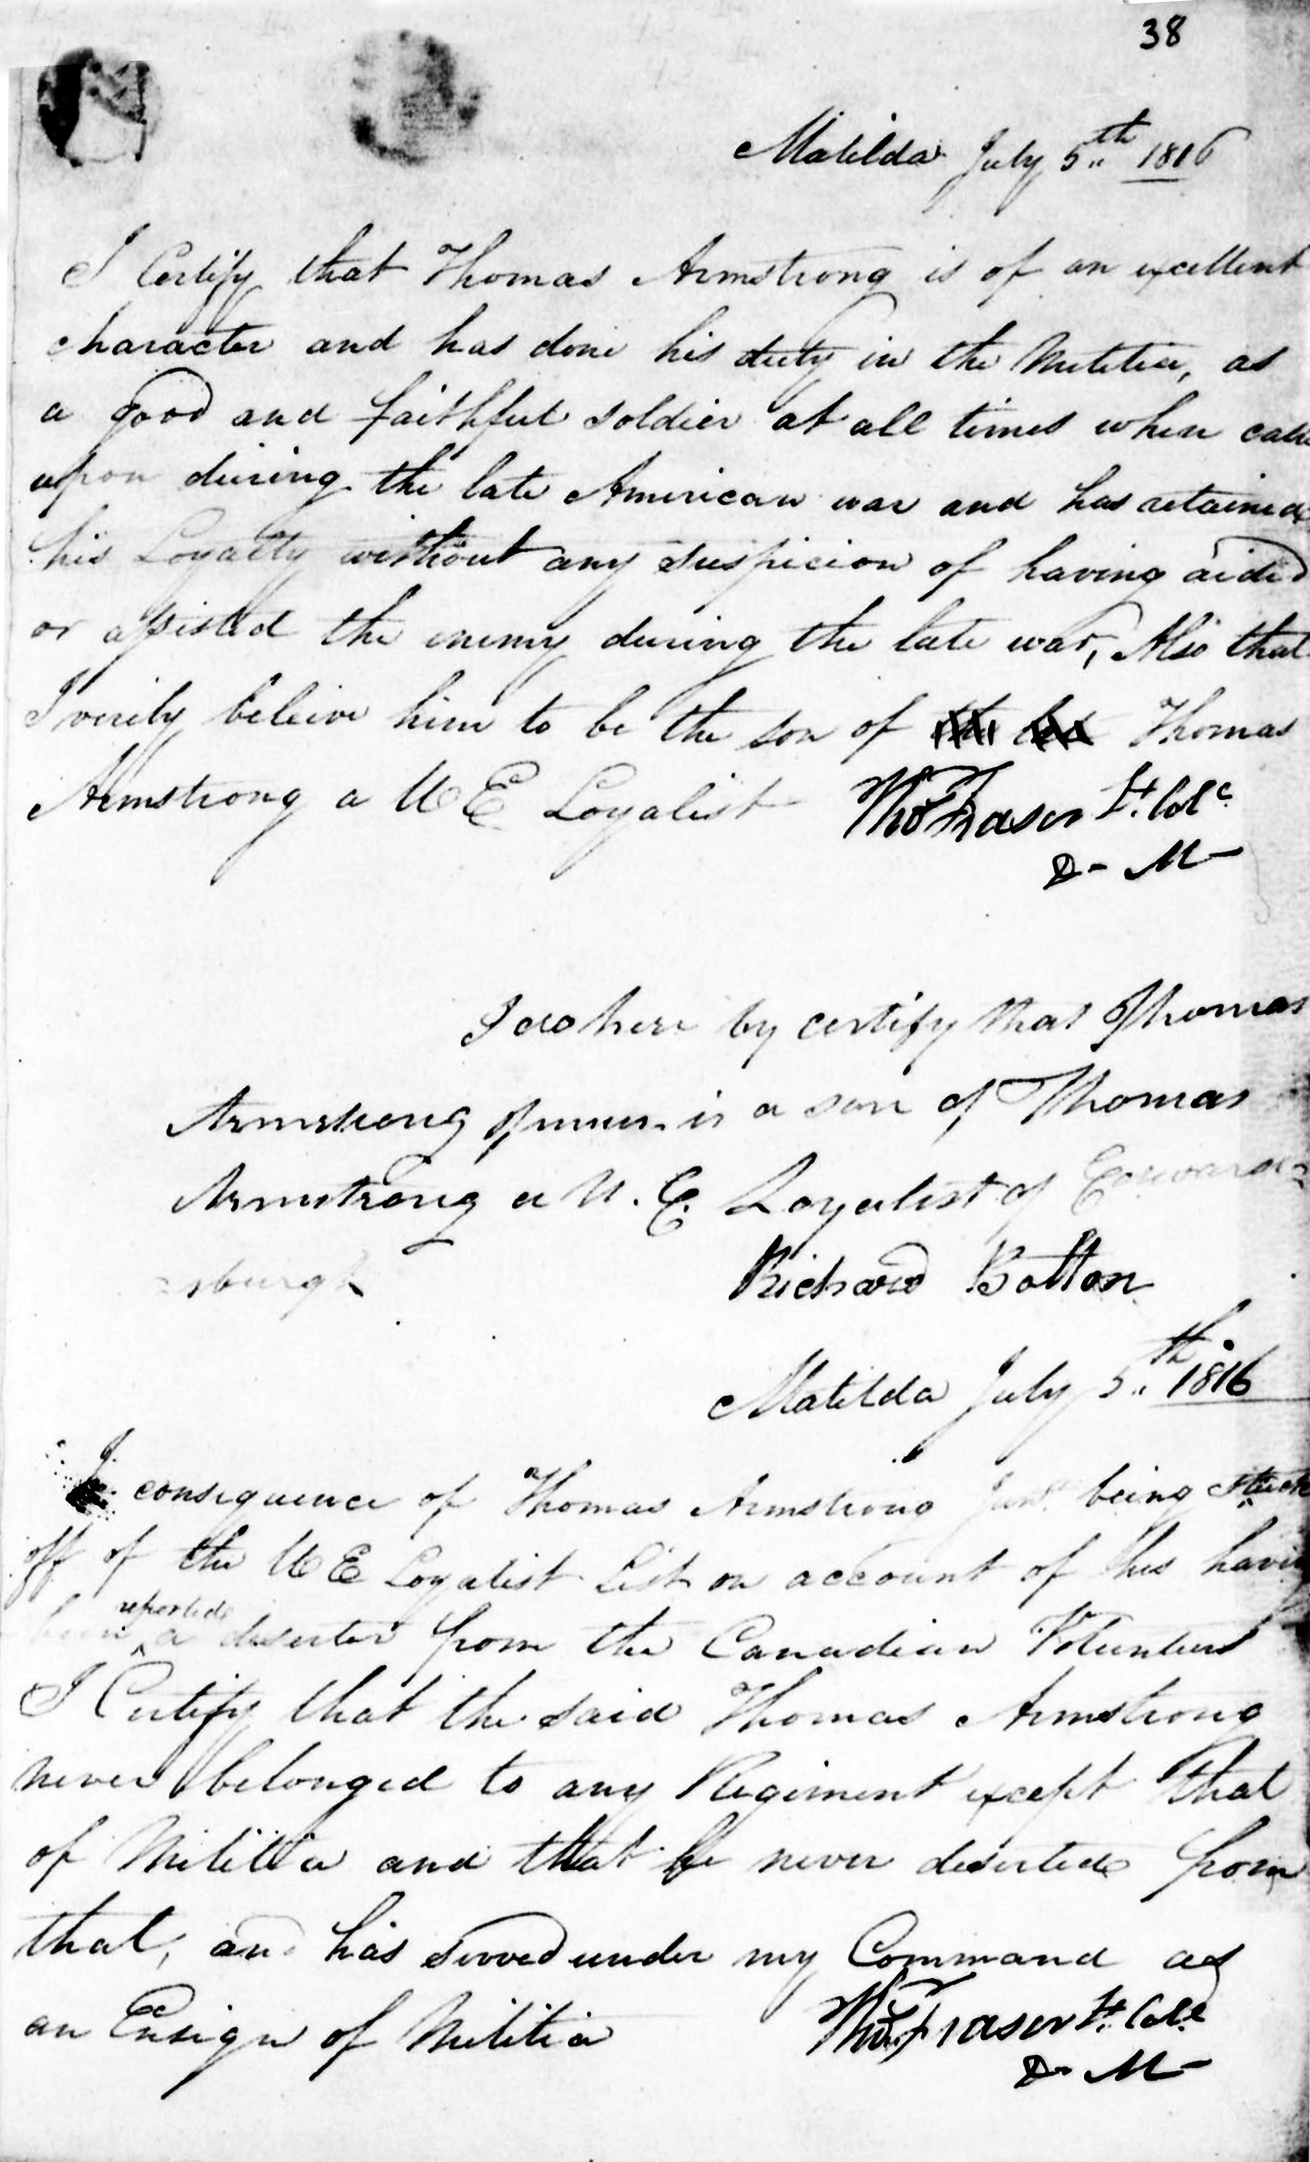 38
Matilda July 5th 1816
I Certify that Thomas Armstrong is of an excellent
character and has done his duty in the Militia, as
a good and faithful soldier at all times when call
upon during the late American war and has retained
his Loyalty without any suspicion of having aided
or assisted the enemy during the late war, Also that
I verily beleive him to be the son of Thomas
Armstrong a U E Loyalist Thos Fraser Lt. Colc
D- M-
I do here by certify that Thomas
Armstrong is a son of Thomas
Armstrong a U. E. Loyalist of Edwards
sburgh Richard Botton
Matilda July 5th 1816
I consequence of Thomas Armstrong Junr being struck
off of the U E Loyalist List on account of his having
been reported a deserter from the Canadian Volunteers
I Certify that the said Thomas Armstrong
never belonged to any Regiment except that
of Militia and that he never deserted from
that, and has served under my Command as
an Ensign of Militia Thos Fraser Lt. Col
D- M-